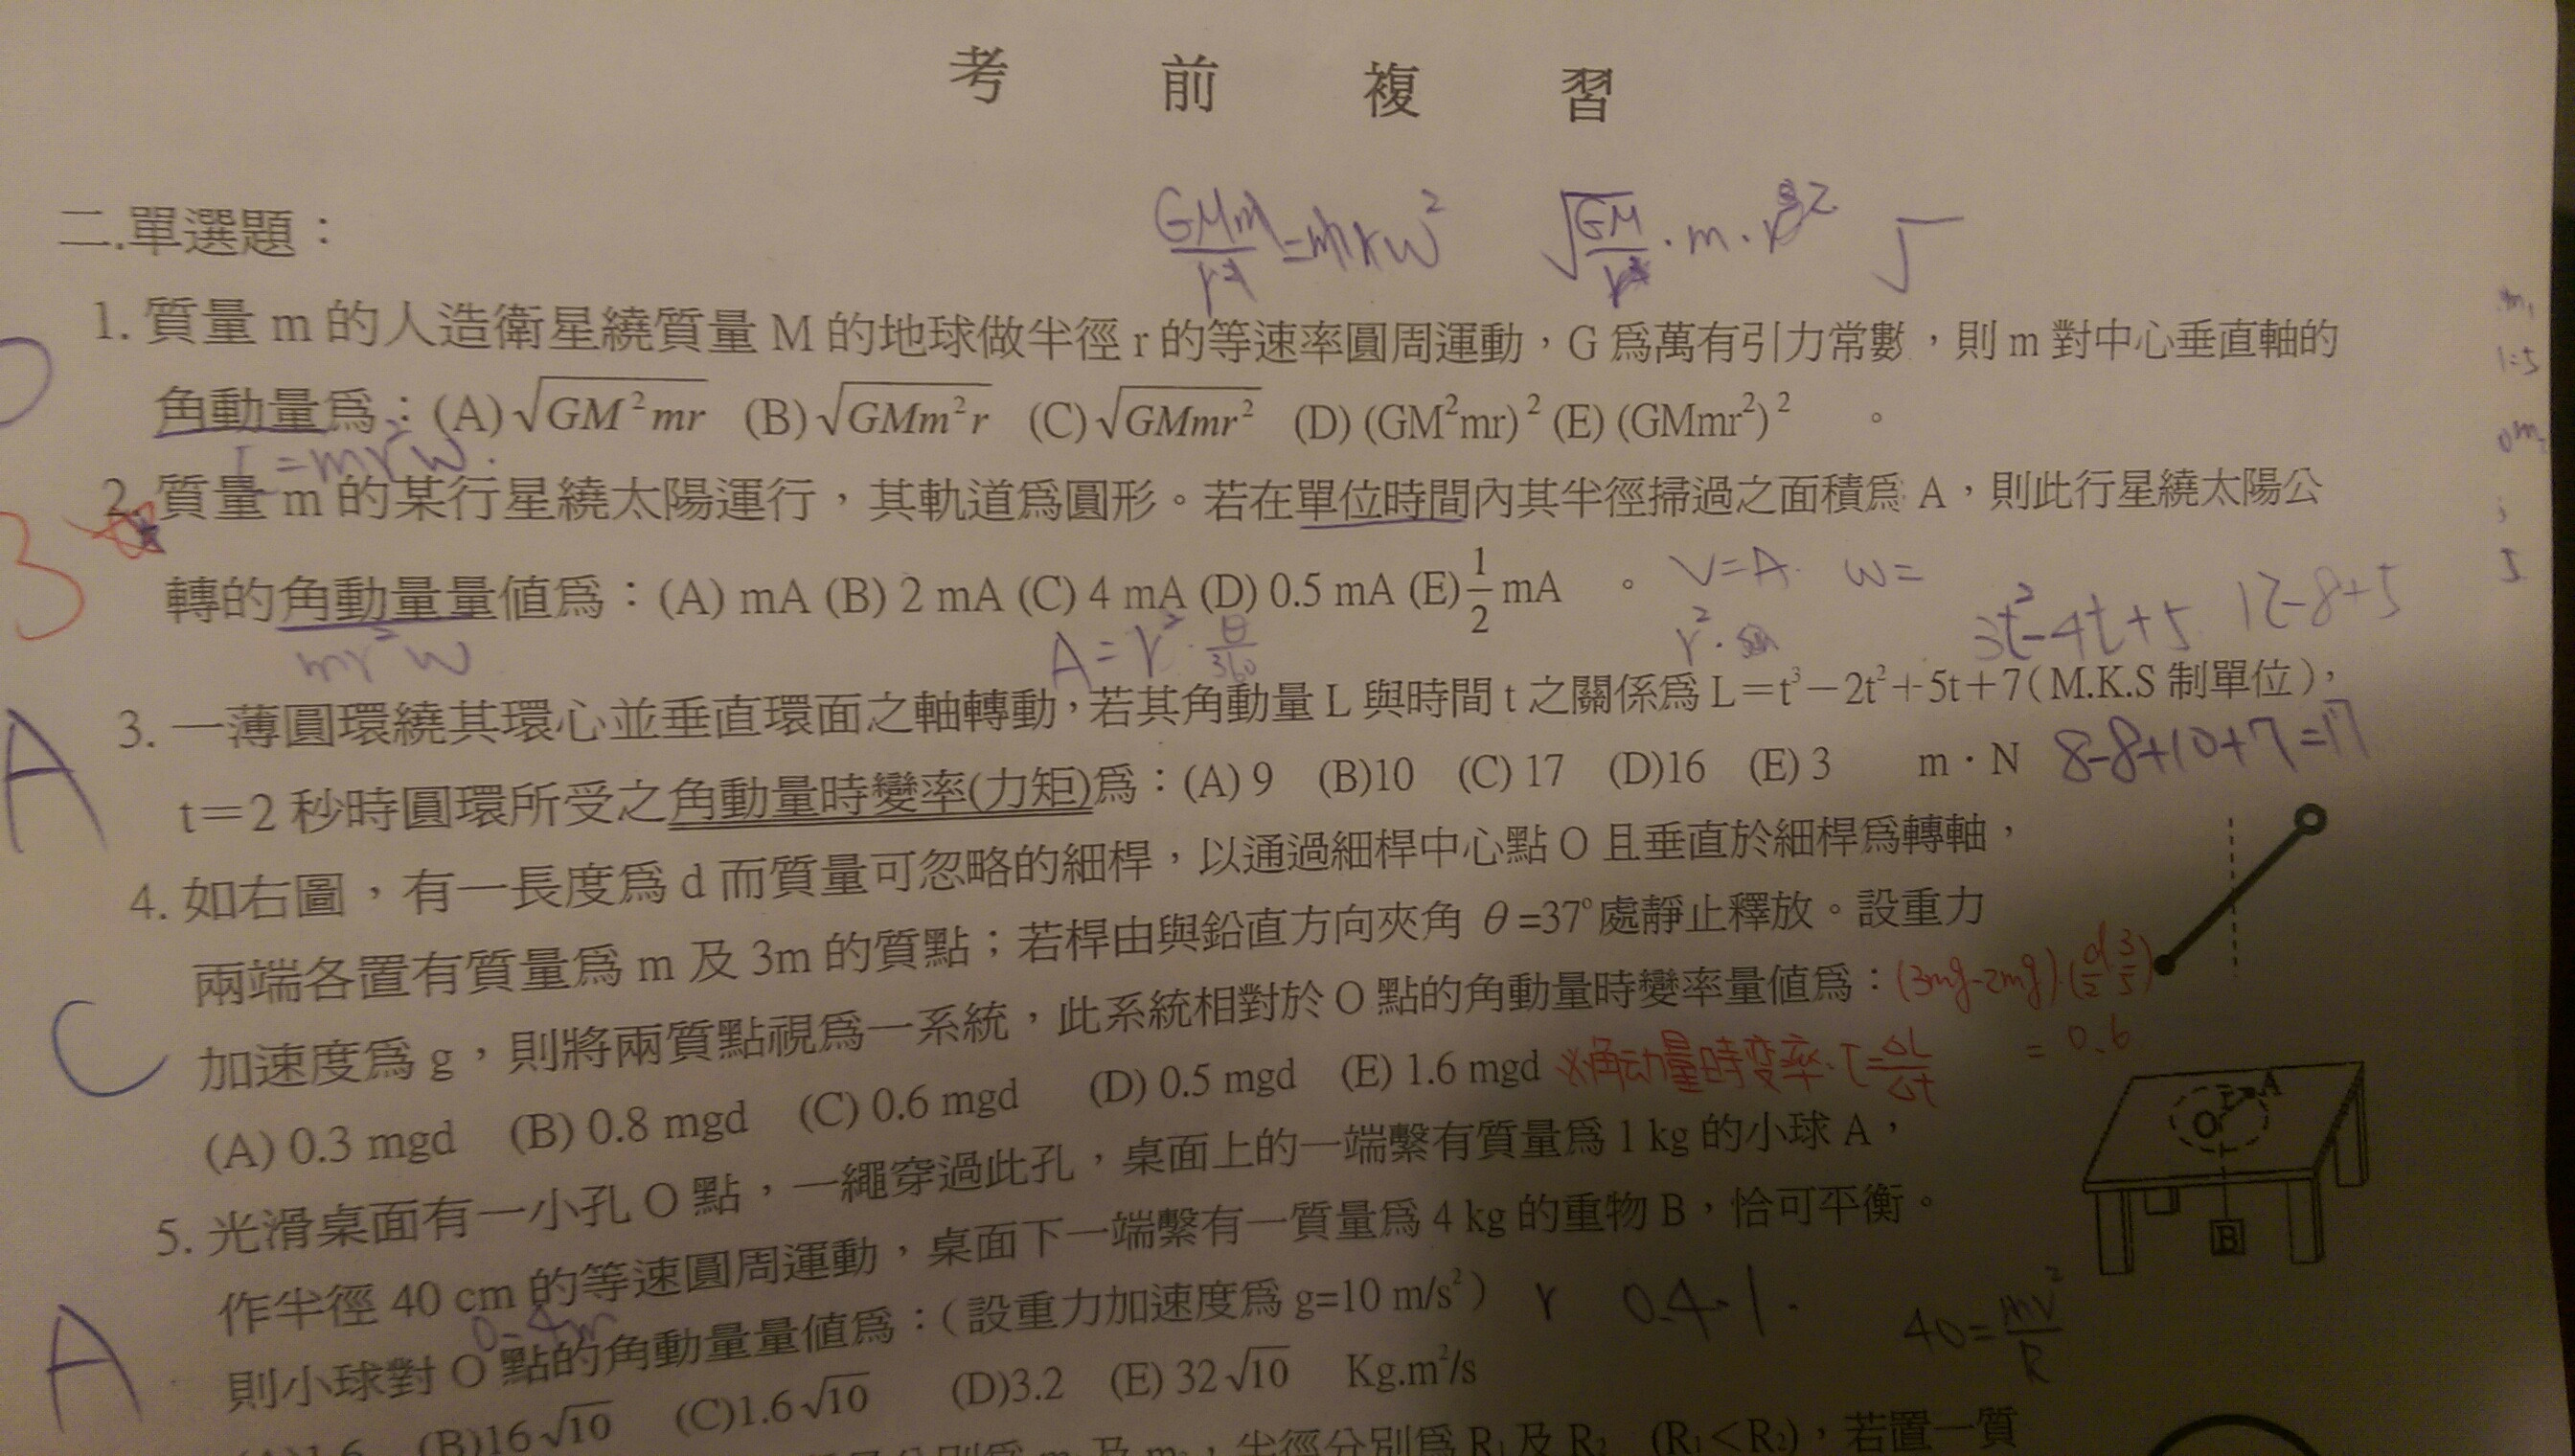 考前複習
GMm/r² = mrw²
√GM/r³ · m · r²
二.單選題：
1. 質量 m 的人造衛星繞質量 M 的地球做半徑 r 的等速率圓周運動，G 爲萬有引力常數，則 m 對中心垂直軸的
角動量爲：(A)√GM²mr (B)√GMm²r (C)√GMmr² (D) (GM²mr)² (E) (GMmr²)² 。
=mr²w.
2. 質量 m 的某行星繞太陽運行，其軌道爲圓形。若在單位時間內其半徑掃過之面積爲 A，則此行星繞太陽公
3
轉的角動量量值爲：(A) mA (B) 2 mA (C) 4 mA (D) 0.5 mA (E) 1/2 mA 。
V=A. w=
mr²w
A=r²·θ/360
3t²-4t+5 12-8+5
3. 一薄圓環繞其環心並垂直環面之軸轉動，若其角動量 L 與時間 t 之關係爲 L＝t³－2t²＋5t＋7( M.K.S 制單位)，
A
t＝2 秒時圓環所受之角動量時變率(力矩)爲：(A) 9 (B)10 (C) 17 (D)16 (E) 3 m．N
8-8+10+7=17
4. 如右圖，有一長度爲 d 而質量可忽略的細桿，以通過細桿中心點 O 且垂直於細桿爲轉軸，
兩端各置有質量爲 m 及 3m 的質點；若桿由與鉛直方向夾角 θ =37°處靜止釋放。設重力
C
加速度爲 g，則將兩質點視爲一系統，此系統相對於 O 點的角動量時變率量值爲：
(3mg-2mg)·(d/2 3/5)
= 0.6
(A) 0.3 mgd (B) 0.8 mgd (C) 0.6 mgd (D) 0.5 mgd (E) 1.6 mgd
※角动量時变率. τ=ΔL/Δt
5. 光滑桌面有一小孔 O 點，一繩穿過此孔，桌面上的一端繫有質量爲 1 kg 的小球 A，
作半徑 40 cm 的等速圓周運動，桌面下一端繫有一質量爲 4 kg 的重物 B，恰可平衡。
O
A
B
A
則小球對 O 點的角動量量值爲：( 設重力加速度爲 g=10 m/s² )
r 0.4·1·
40=mv²/R
(A)1.6 (B)16√10 (C)1.6√10 (D)3.2 (E) 32√10 Kg.m²/s
半徑分別爲 R₁ 及 R₂ (R₁＜R₂)，若置一質